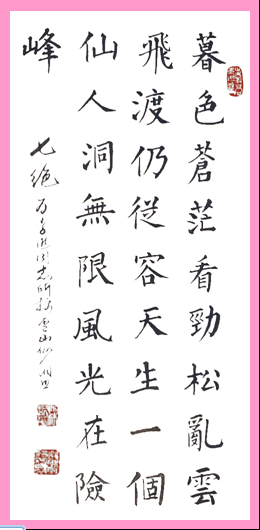 暮色蒼茫看勁松亂雲
飛渡仍從容天生一個
仙人洞無限風光在險
峰
七絕